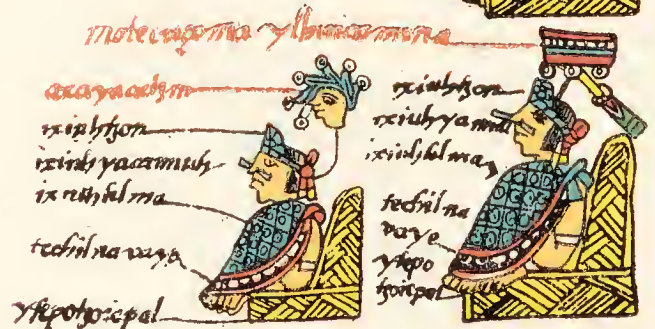 motecuçoma ylhuicamina
axayacatzin
ixiuhtzon
ixiuhyacamiuh
ixiuhtilma
techilnavayo
ytepotzoicpal
ixiuhtzon
ixiuhtilma
techilna
vayo
ytepo
tzoicpal